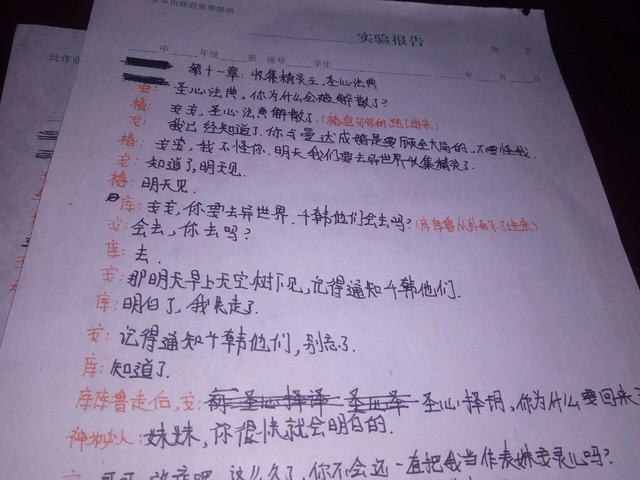 实验报告
中 年级 班 座号 学生 年 月 日
此作业
第十一章：收集精灵王，圣心法典
安：圣心法典，你为什么会被解散了？
椿：安安，圣心法典解散了。
安：我已经知道了，你与曼达成婚是要顾全大局的，不要怪我.
椿：安安，我不怪你.明天我们要去异世界收集精灵了.
安：知道了，明天见.
椿：明天见.
库：安安，你要去异世界.千韩他们会去吗？(库库鲁从外面飞了进来)
安：会去，你去吗？
库：去.
安：那明天早上天空树下见，记得通知千韩他们.
库：明白了，我先走了.
安：记得通知千韩他们，别忘了.
库：知道了.
库库鲁走后，安： 圣心择明，你为什么要回来
神秘人：妹妹，你很快就会明白的.
这么久了，你不会还一直把我当作表妹安灵儿吗？